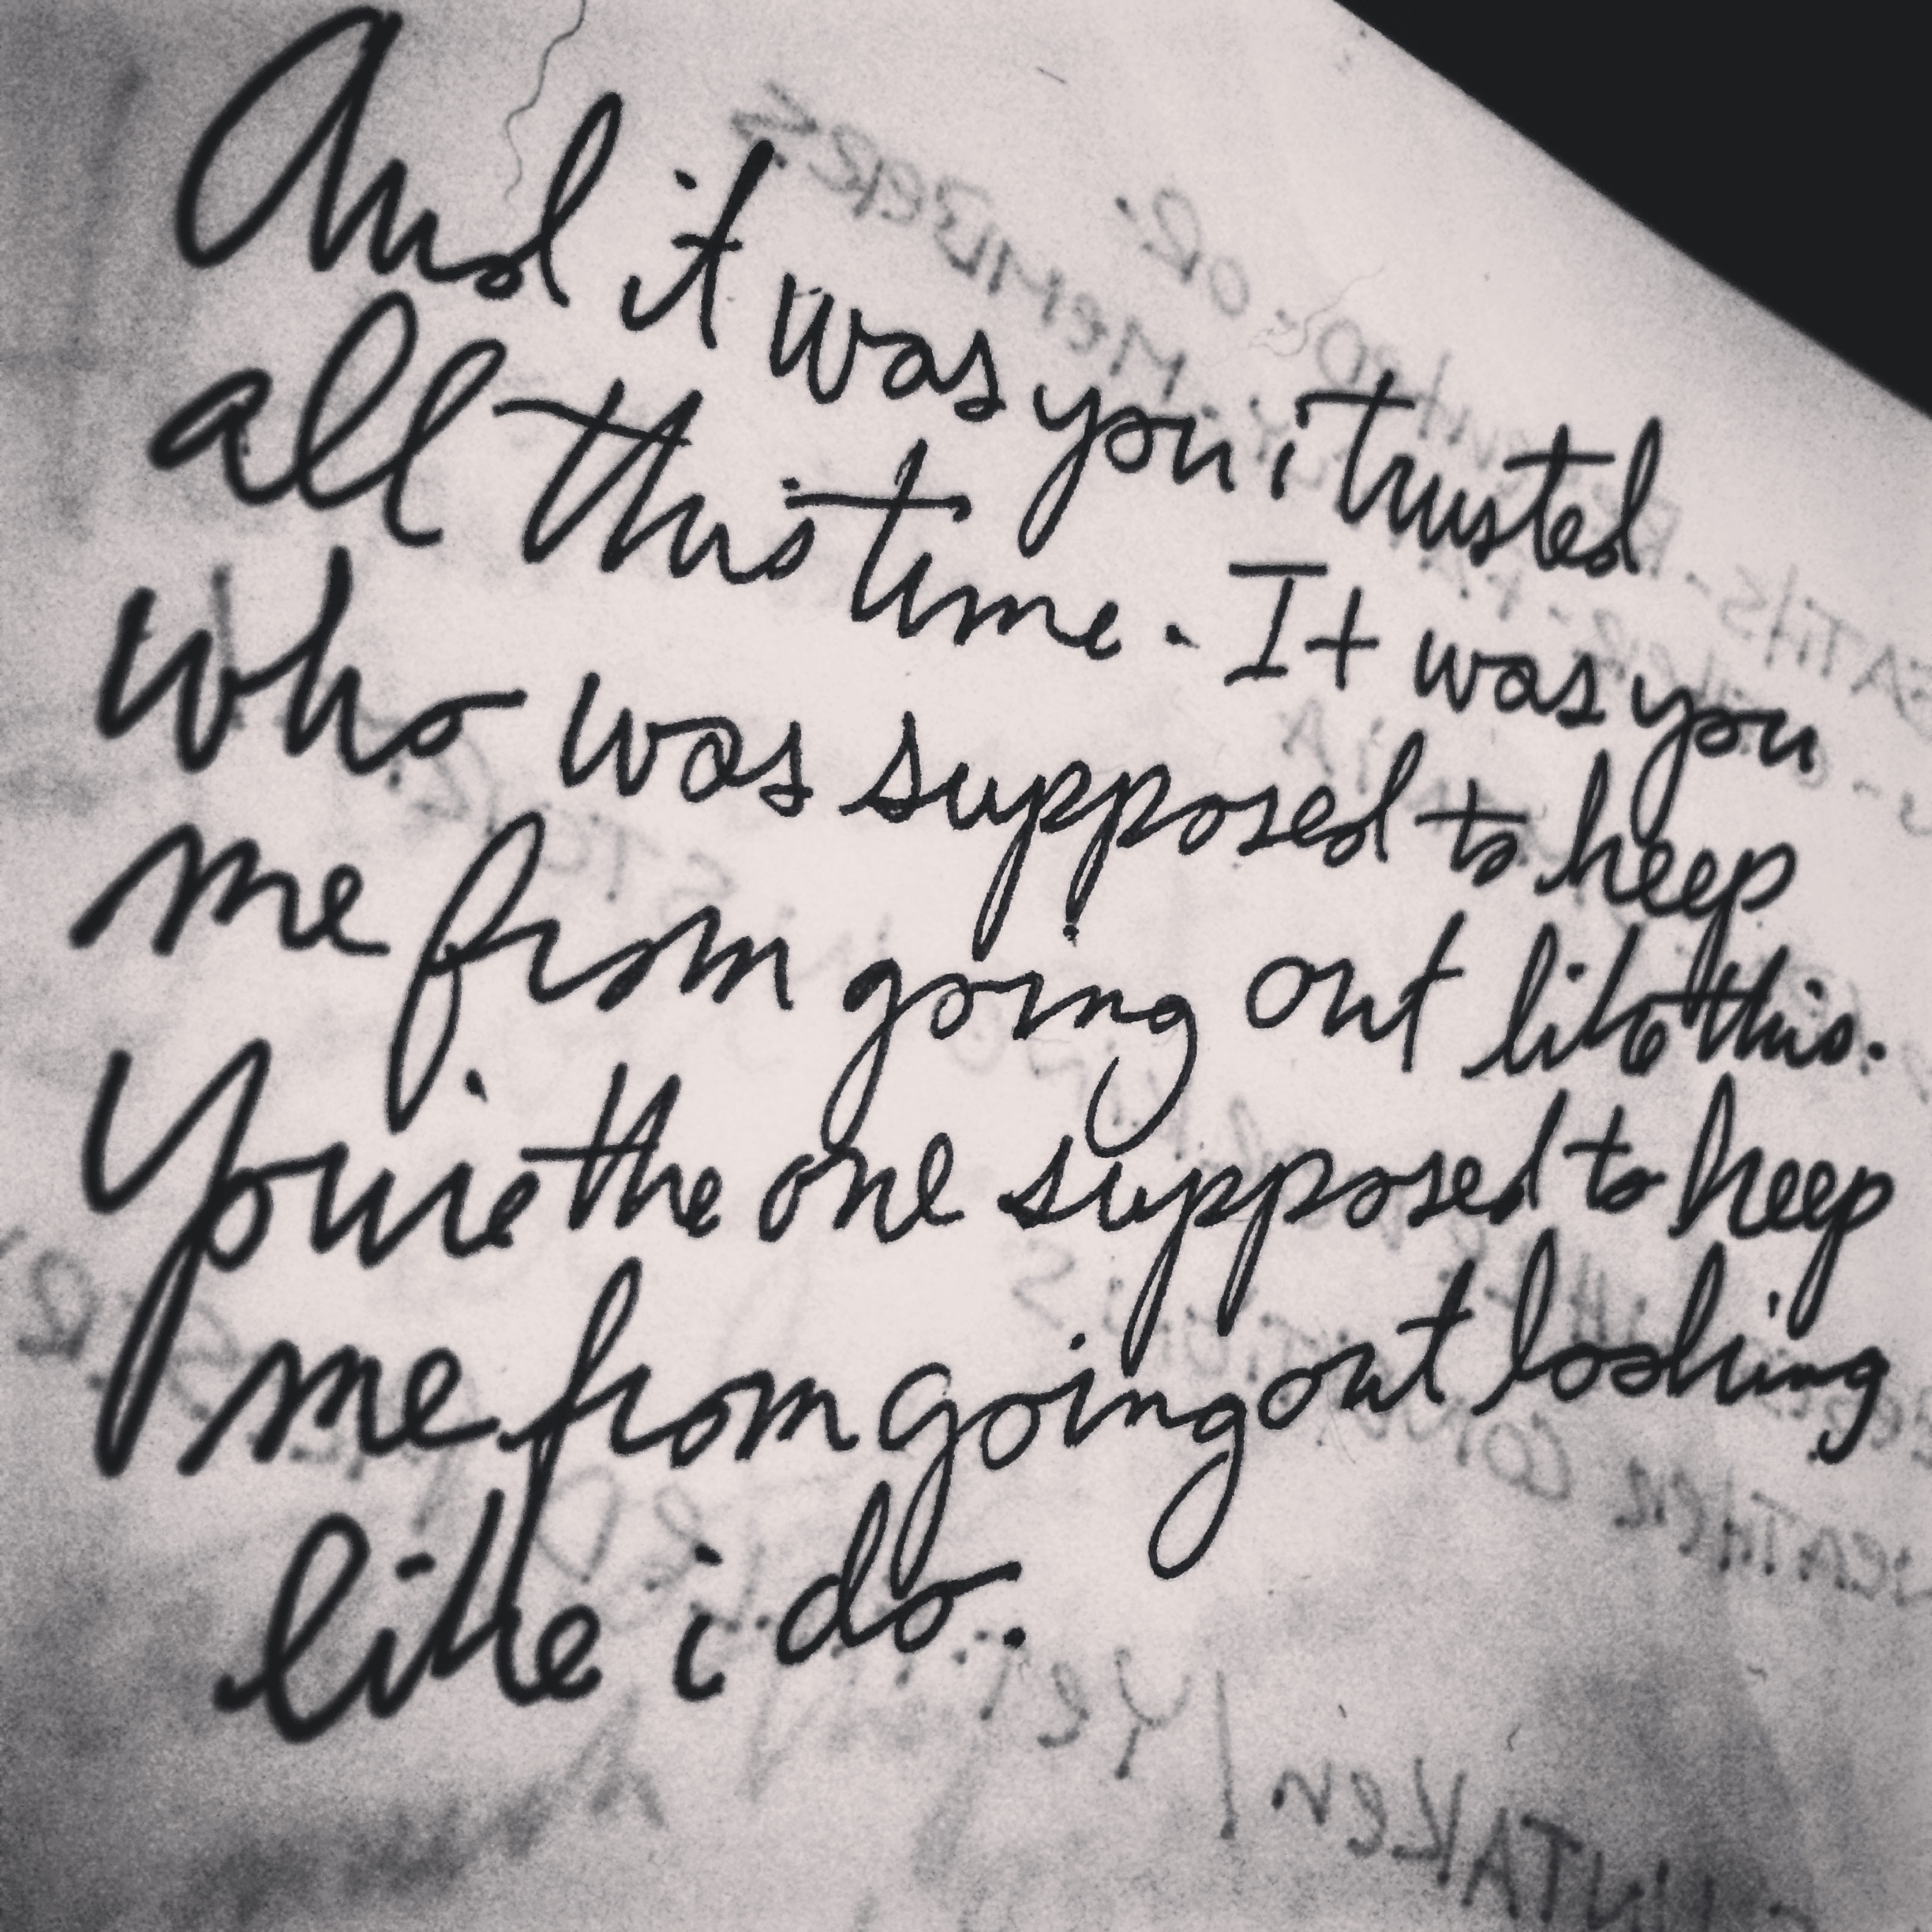 And it was you i trusted
all this time. It was you
who was supposed to keep
me from going out like this.
You're the one supposed to keep
me from going out looking
like i do.